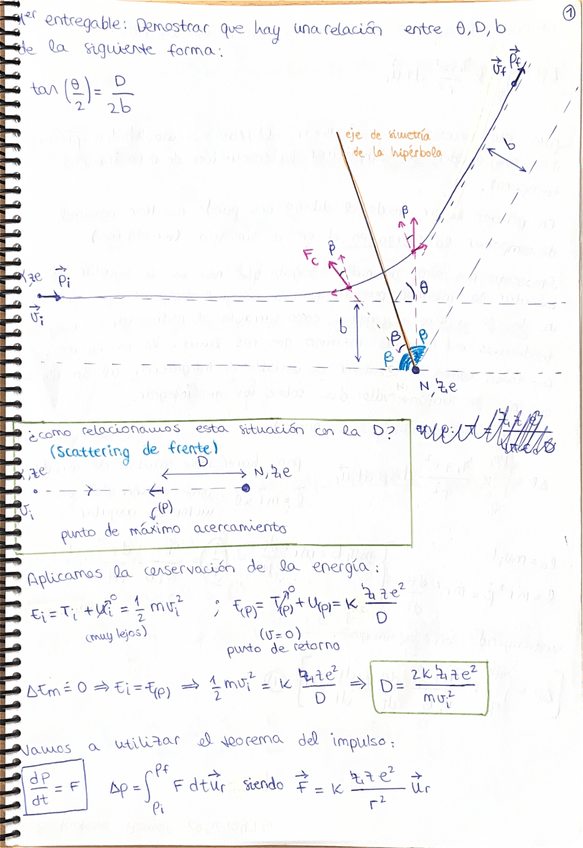 1er entregable: Demostrar que hay una relación entre θ, D, b
de la siguiente forma:
①
tan (θ/2) = D/2b
eje de simetría
de la hipérbola
v⃗f p⃗f
b
β
Fc p̂
ze p⃗i
v⃗i
b
θ
β β
β
N, z₁e
¿Cómo relacionamos esta situación con la D?
(Scattering de frente)
ze D N, z₁e
vi (P)
punto de máximo acercamiento
Aplicamos la conservación de la energía:
Ei = Ti + Ui⁰ = 1/2 mvi² ; E(p) = T(p)⁰ + U(p) = K z₁ze²/D
(muy lejos) (v=0)
punto de retorno
ΔEm = 0 ⇒ Ei = E(p) ⇒ 1/2 mvi² = K z₁ze²/D ⇒ D = 2K z₁ze²/mvi²
Vamos a utilizar el teorema del impulso:
dP/dt = F Δp = ∫pi^pf F dt u⃗r siendo F⃗ = K z₁ze²/r² u⃗r